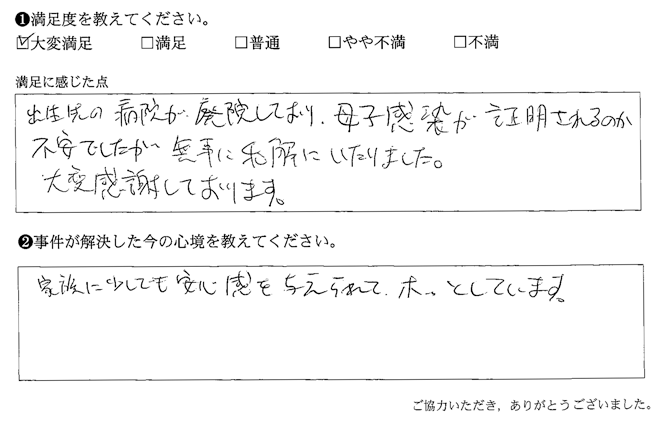 ❶満足度を教えてください。
☑大変満足 □満足 □普通 □やや不満 □不満
満足に感じた点
出生先の病院が廃院しており、母子感染が証明されるのか
不安でしたが無事に和解にいたりました。
大変感謝しております。
❷事件が解決した今の心境を教えてください。
家族に少しでも安心感を与えられて、ホッとしています。
ご協力いただき，ありがとうございました。